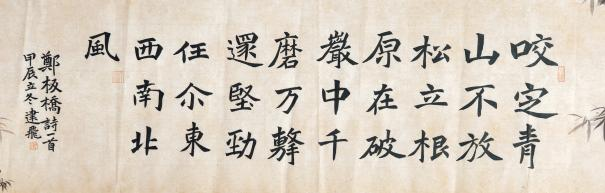 咬定青
山不放
松立根
原在破
巖中千
磨万擊
還堅勁
任尒東
西南北
風
鄭板橋詩一首
甲辰立冬建飛